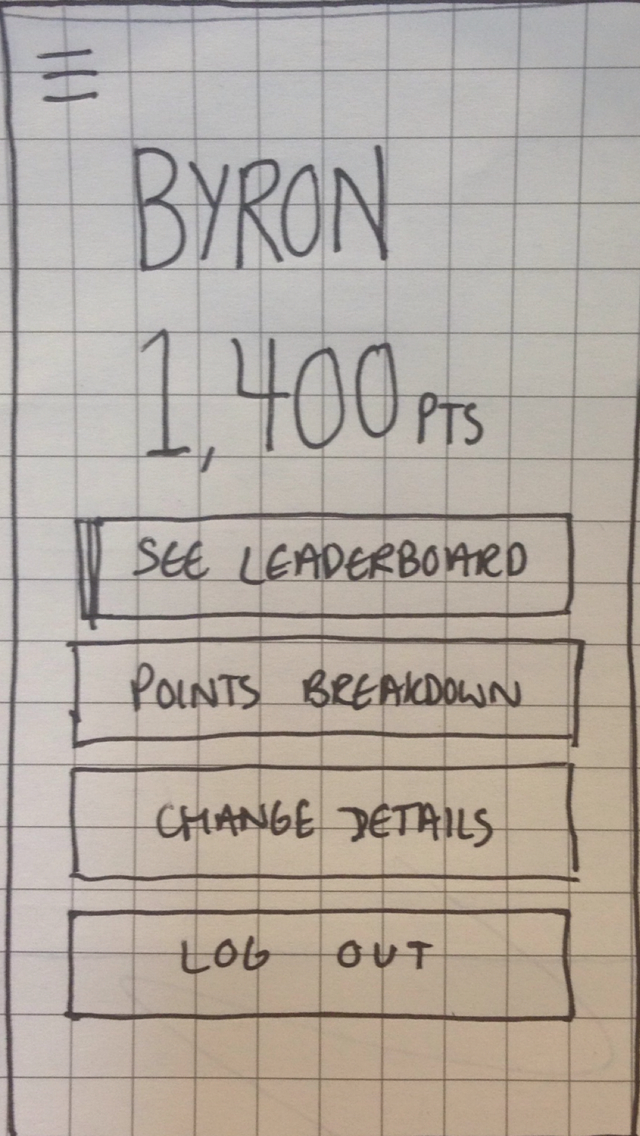 BYRON
1,400 PTS
SEE LEADERBOARD
POINTS BREAKDOWN
CHANGE DETAILS
LOG OUT